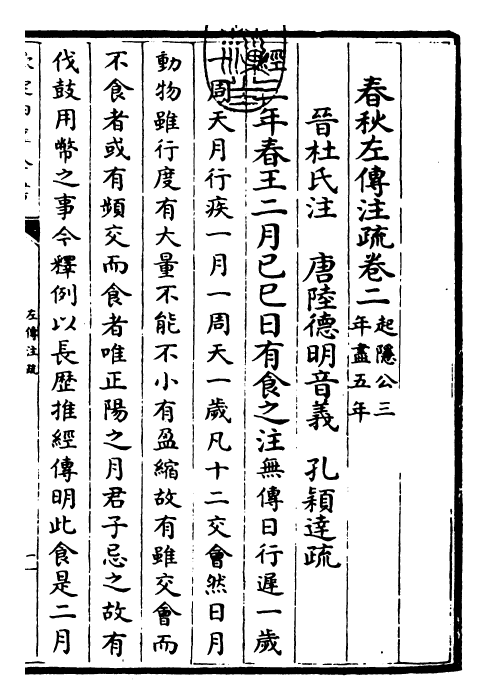 春秋左傳注疏卷二
起隱公三
年盡五年
晉杜氏注　唐陸德明音義　孔穎達疏
經三年春王二月己巳日有食之注無傳日行遲一歲
一周天月行疾一月一周天一歲凡十二交會然日月
動物雖行度有大量不能不小有盈縮故有雖交會而
不食者或有頻交而食者唯正陽之月君子忌之故有
伐鼓用幣之事今釋例以長歴推經傳明此食是二月
左傳注疏
一